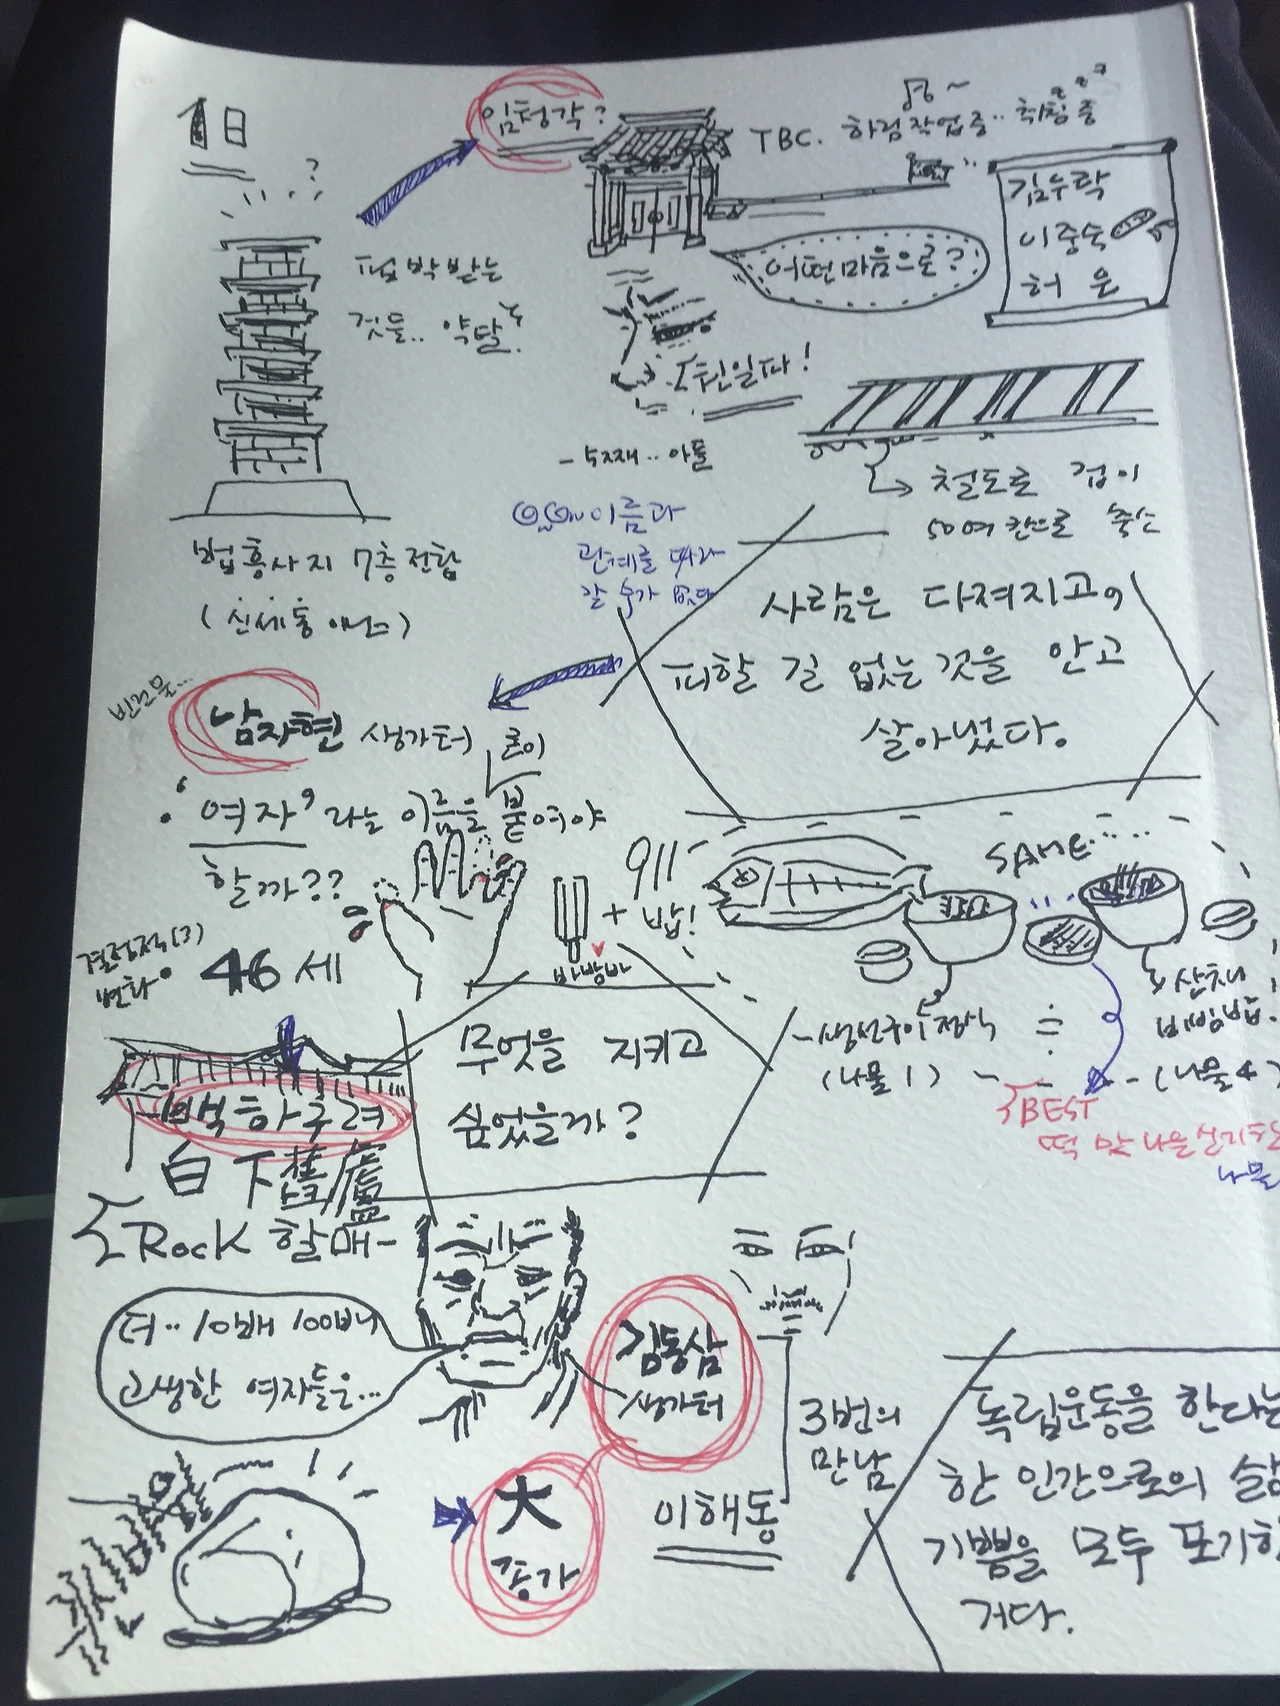 1日
임청각?
TBC. 하검작업중.. 취침중
zzz
김우락
이중숙
허은
어떤마음으로?
핍박받는
것들.. 약탈
친일파!
- 첫째.. 아들
철도로 겹이
50여칸으로 축소
법흥사지 7층전탑
(신세동 아님)
이름과
관계를 따라
갈 수가 없다
사람은 다져지고,
피할 길 없는 것을 안고
살아냈다.
빈건물...
남자현 생가터
굳이
'여자'라는 이름을 붙여야
할까??
911
SAME....
+ 밥!
바밤바
결정적(3)
변화
46세
산채
비빔밥!
- 생선구이정식
(나물1)
(나물4)
BEST
무엇을 지키고
싶었을까?
백하구려
白下舊廬
Rock 할매-
더.. 10배 100배
고생한 여자들은...
김동삼
생가터
3번의
만남
이해동
大
종가
독립운동을 한다는
한 인간으로의 삶
기쁨을 모두 포기한
거다.